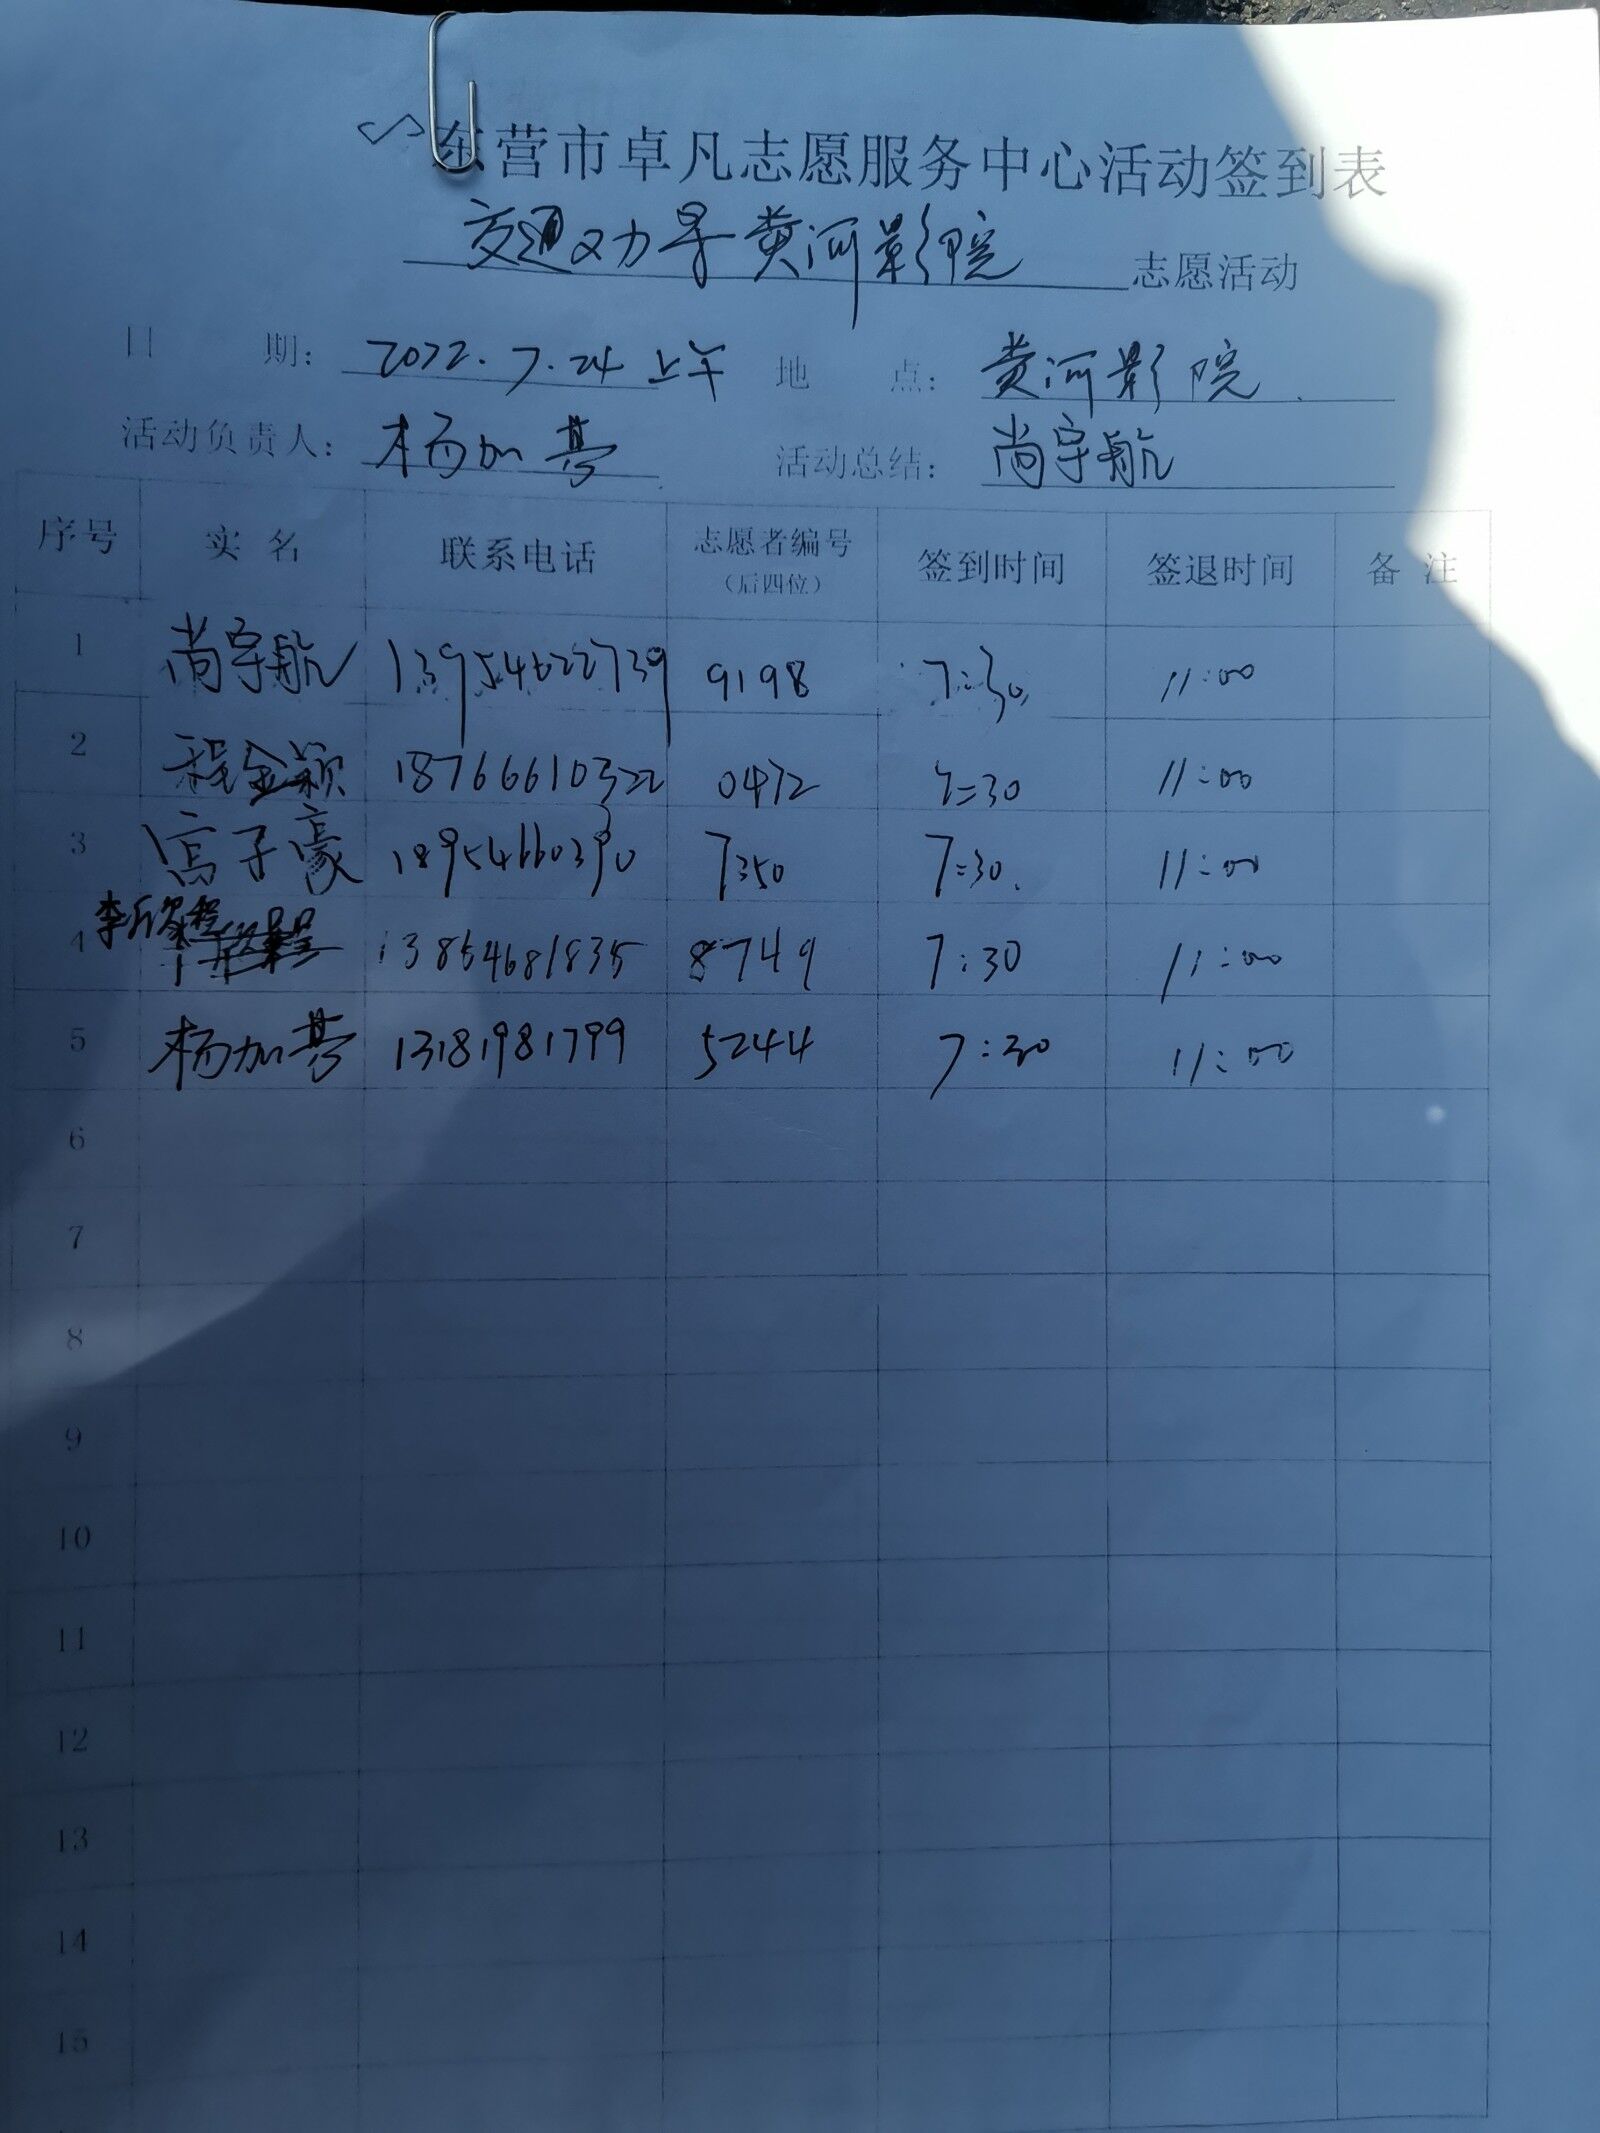 东营市卓凡志愿服务中心活动签到表
交通劝导黄河影院 志愿活动
日 期: 2022.7.24 上午 地 点: 黄河影院
活动负责人: 杨加 活动总结: 尚宇航
序号 实名 联系电话 志愿者编号（后四位） 签到时间 签退时间 备注
1 尚宇航 13954622739 9198 7:30 11:00
2 程金颖 18766610322 0472 7:30 11:00
3 子豪 18954660390 7:30 11:00
4 李 13854681835 8749 7:30 11:00
5 杨加 13181981799 5244 7:30 11:00
6
7
8
9
10
11
12
13
14
15